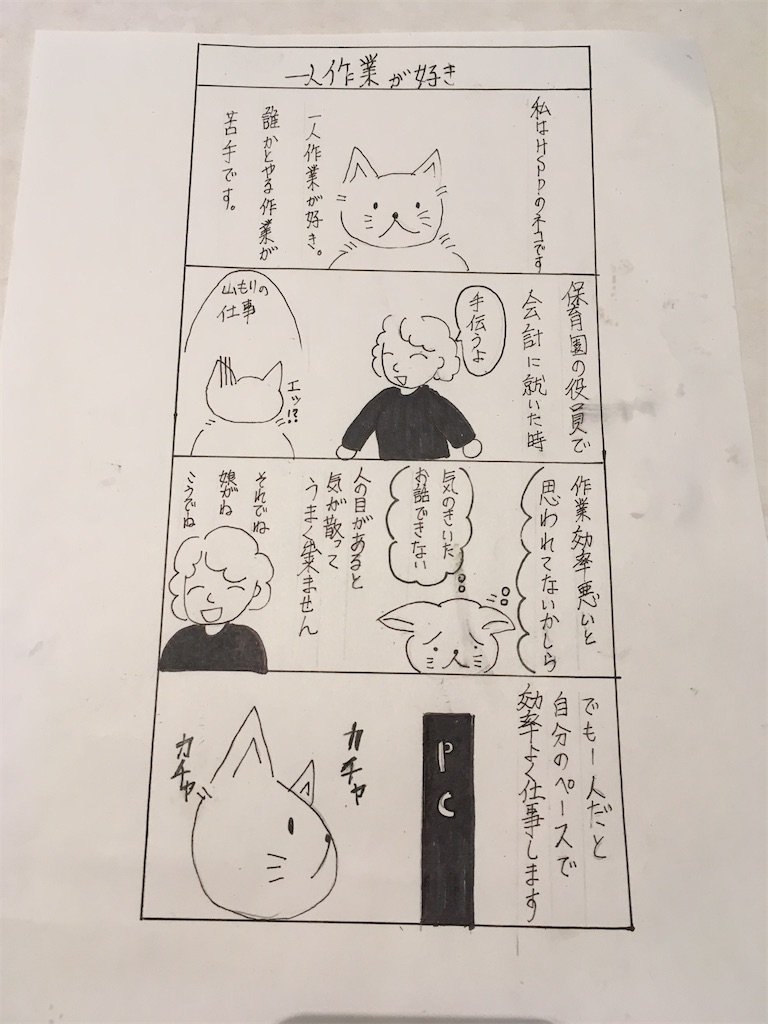 一人作業が好き
私はHSPのネコです
一人作業が好き。
誰かとやる作業が
苦手です。
保育園の役員で
会計に就いた時
手伝うよ
エッ!?
山もりの
仕事
作業効率悪いと
思われてないかしら
気のきいた
お話できない
人の目があると
気が散って
うまく出来ません
それでね
娘がね
こうでね
でも一人だと
自分のペースで
効率よく仕事します
PC
カチャ
カチャ